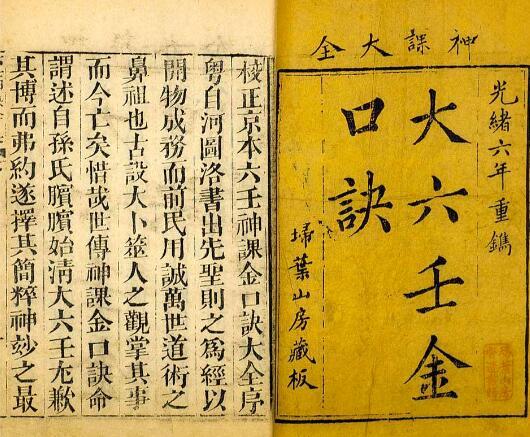 神課大全
光緒六年重鐫
大六壬金
口訣
埽葉山房藏板
校正京本六壬神課金口訣大全序
粵自河圖洛書出先聖則之爲經以
開物成務而前民用誠萬世道術之
鼻祖也古設大卜筮人之觀掌其事
而今亡矣惜哉世傳神課金口訣命
謂述自孫氏臏臏始淸大六壬尤歉
其博而弗約遂擇其簡粹神妙之最